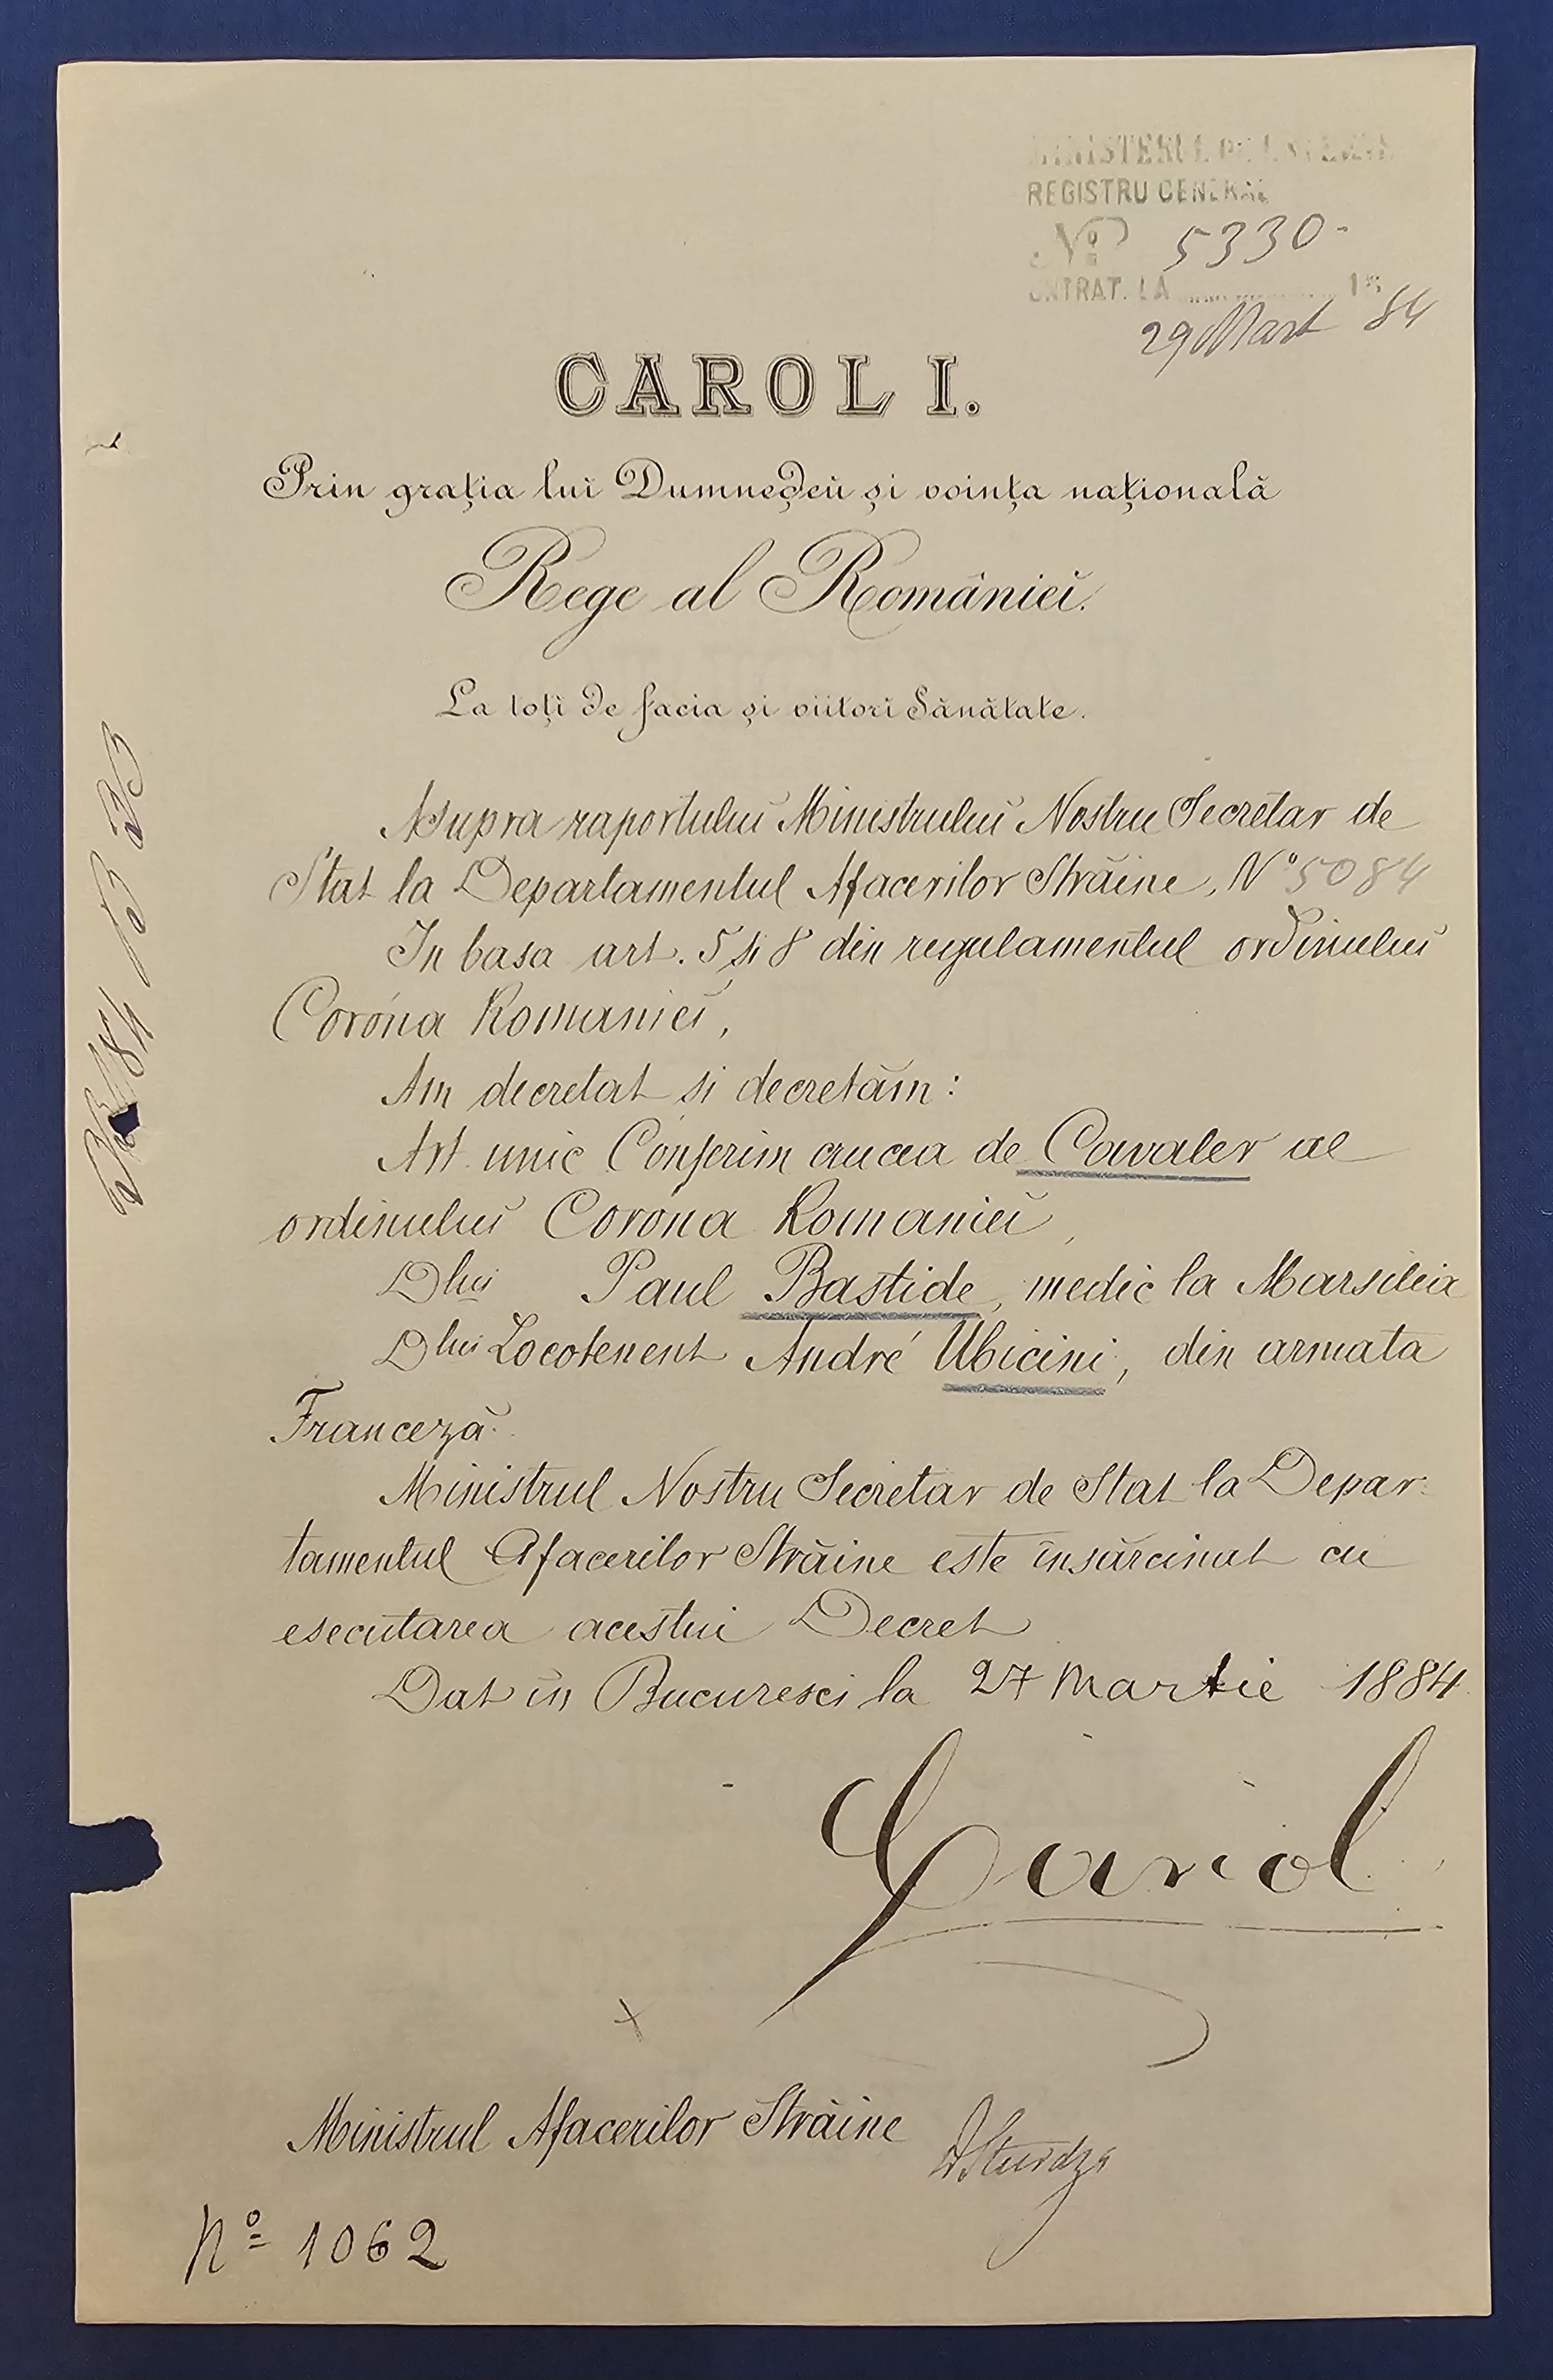 MINISTERUL DE ESTERNE
REGISTRU GENERAL
No 5330-
INTRAT. LA 18
29 Mart 84
CAROL I.
Prin grația luĭ Dumneḑeŭ și voința națională
Rege al Românieĭ.
La toțĭ de facia și viitorĭ Sănătate.
Asupra raportuluĭ Ministruluĭ Nostru Secretar de
Stat la Departamentul Afacerilor Străine, No 5084
In basa art. 5 și 8 din regulamentul ordinuluĭ
Coróna Romanieĭ,
Am decretat si decretăm:
Art. unic Conferim crucea de Cavaler al
ordinuluĭ Coróna Romanieĭ,
Dlui Paul Bastide, medic la Marsilia
Dlui Locotenent André Ubicini, din armata
Franceză.
Ministrul Nostru Secretar de Stat la Depar-
tamentul Afacerilor Străine este însărcinat cu
esecutarea acestui Decret
Dat in Bucuresci la 27 Martie 1884
Carol
Ministrul Afacerilor Străine DSturdza
No 1062